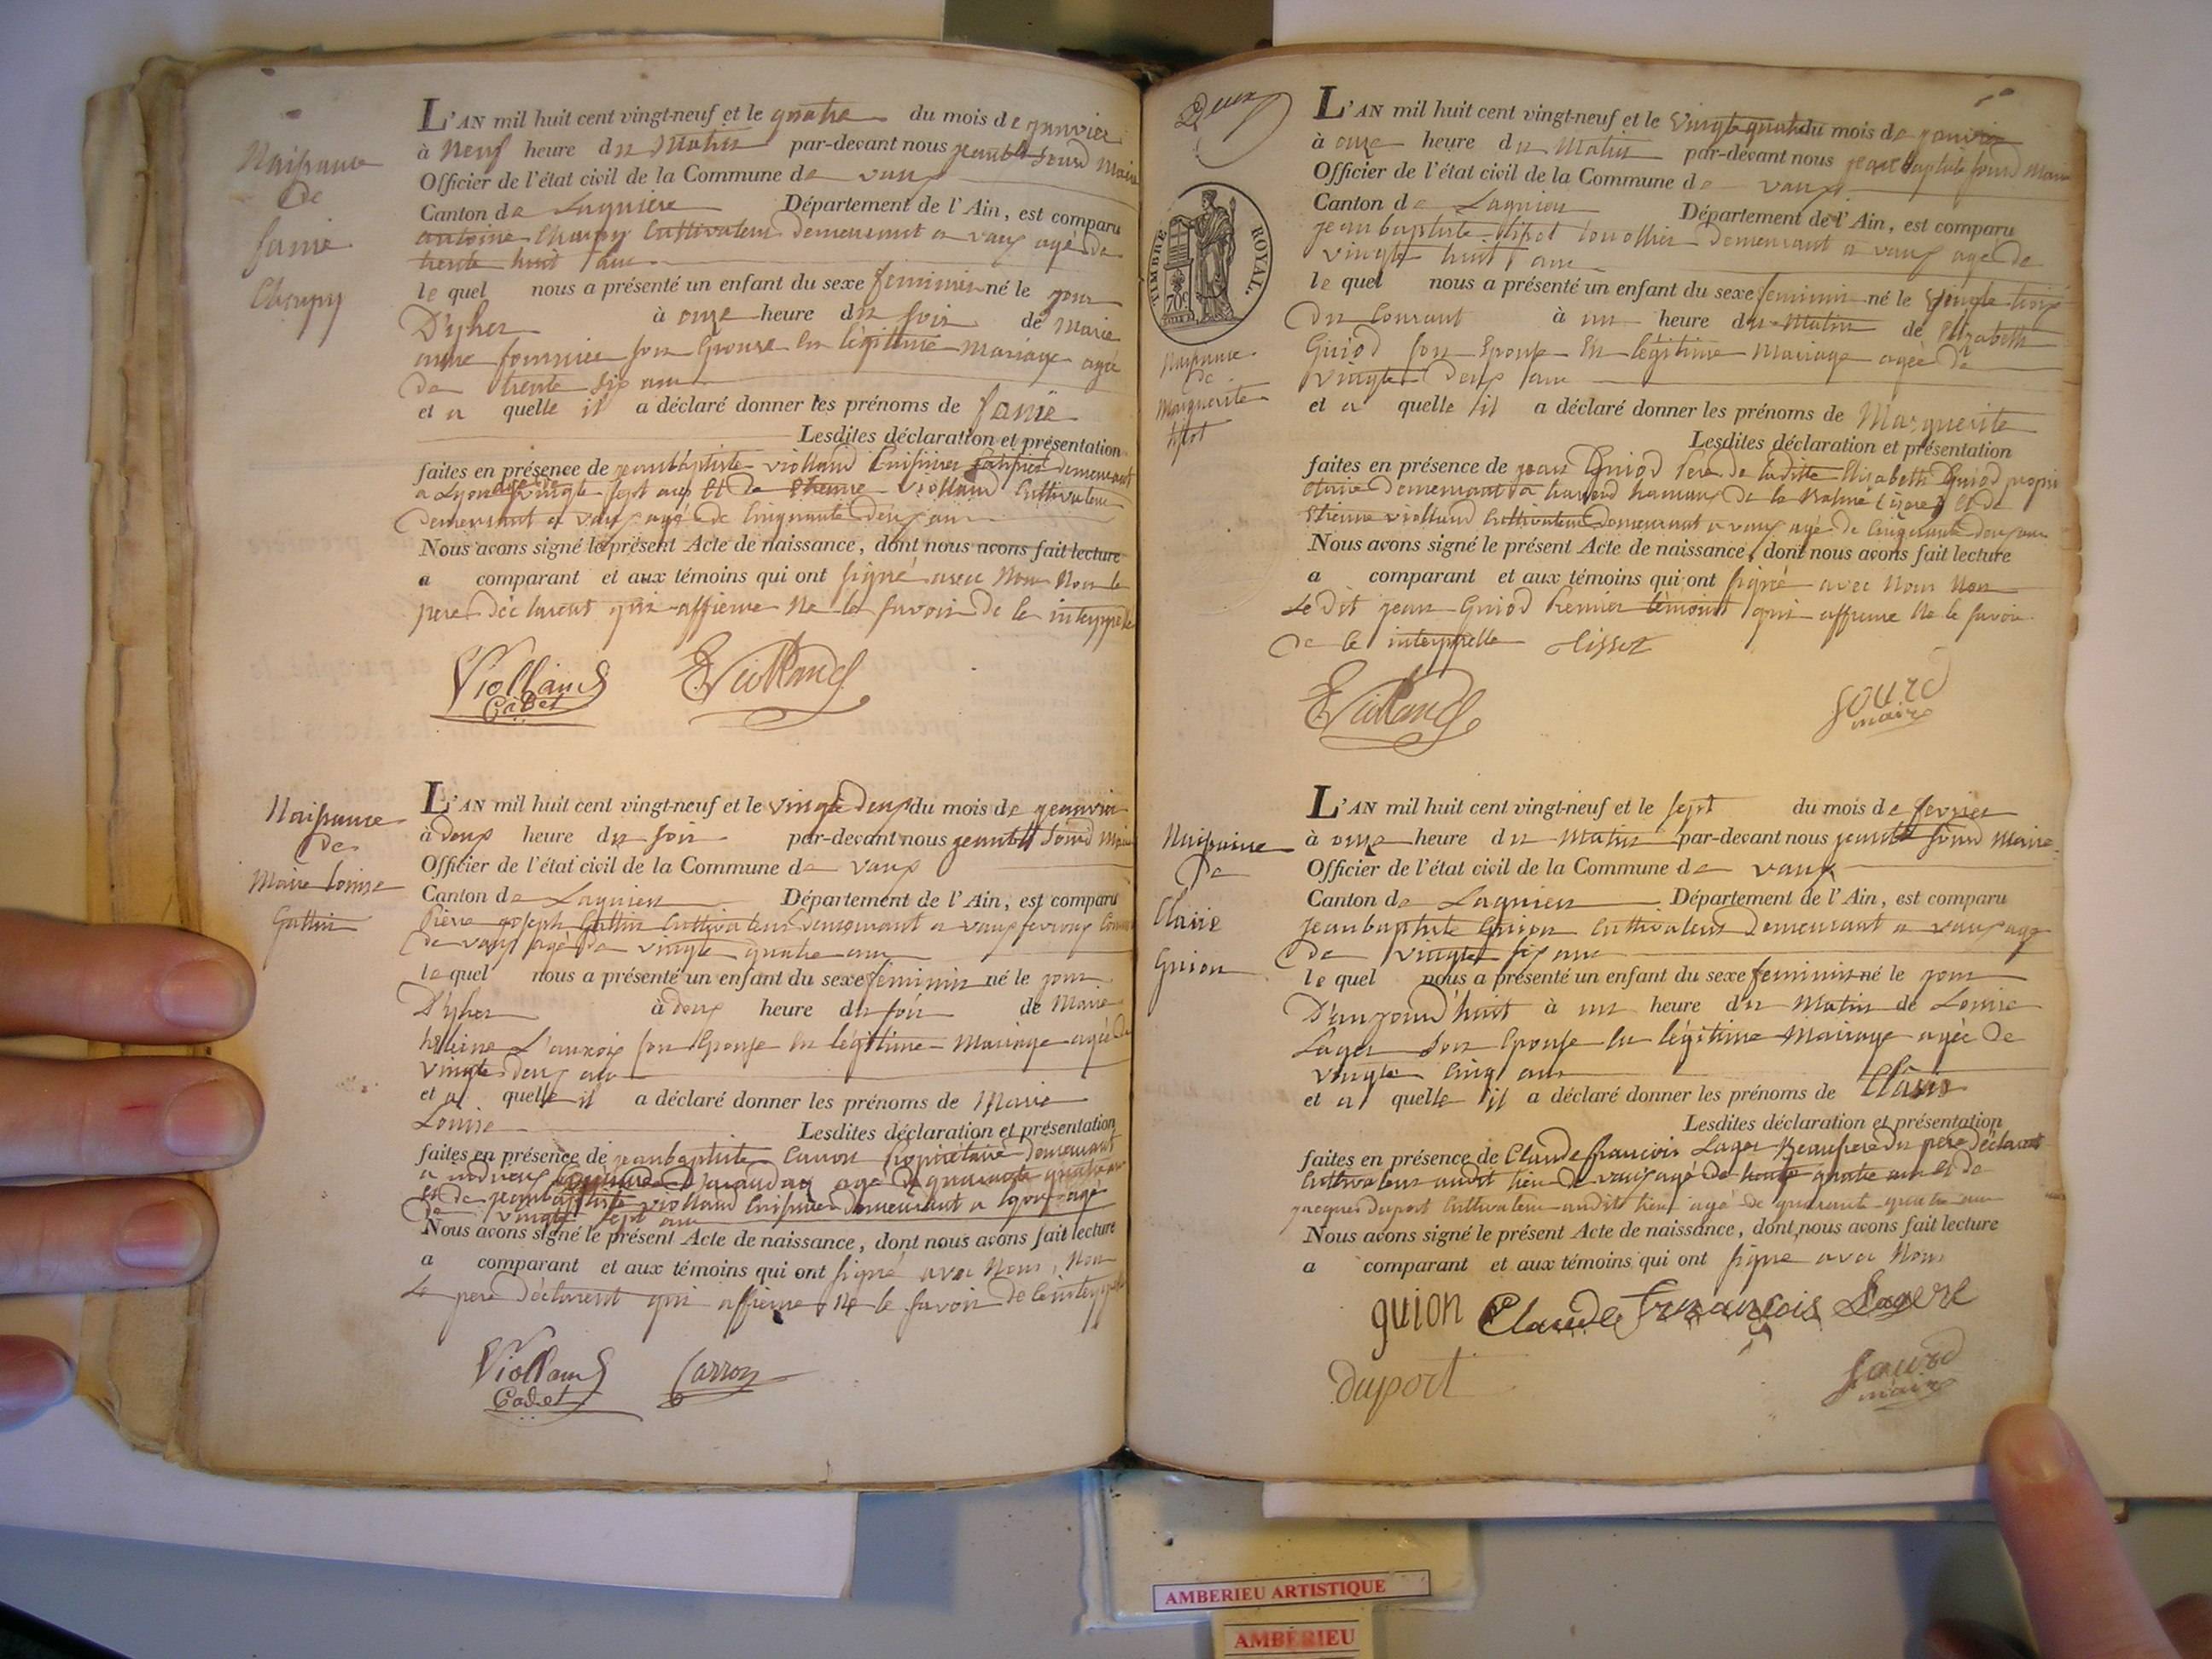 Naissance
de
fanie
Chapuy
L'AN mil huit cent vingt-neuf et le quatre du mois de janvier
à Neuf heure du Matin par-devant nous jean bte Sourd Maire
Officier de l'état civil de la Commune de vaux
Canton de Lagnieu Département de l'Ain, est comparu
antoine Cultivateur demeurant a vaux agé de
trente huit ans
le quel nous a présenté un enfant du sexe feminin né le jour
D'yher à onze heure du soir de Marie
anne fournier son Epouse en légitime mariage agée
de trente six ans
et a quelle il a déclaré donner les prénoms de fanie
Lesdites déclaration et présentation
faites en présence de jeanbaptiste violland Cuisinier demeurant
a Lyon agé de vingte sept ans et de Etienne violland Cultivateur
demeurant a vaux agé de Cinquante deux ans
Nous avons signé le présent Acte de naissance, dont nous avons fait lecture
a comparant et aux témoins qui ont signé avec Nous Non le
pere déclarent qui affierme Ne le savoir de le interppellé
Violland
Cadet
E Violland
Naissance
de
Marie Louise
Gattin
L'AN mil huit cent vingt-neuf et le vingte deux du mois de jeanvier
à deux heure du soir par-devant nous jean bte Sourd Maire
Officier de l'état civil de la Commune de vaux
Canton de Lagnieu Département de l'Ain, est comparu
Pierre joseph Gattin Cultivateur demeurant a vaux fevroux
de vaux agé de vingte quatre ans
le quel nous a présenté un enfant du sexe feminin né le jour
D'yher à deux heure du soir de Marie
L'auxois son Epouse en légitime Mariage agée de
vingte deux ans
et a quelle il a déclaré donner les prénoms de Marie
Louise
Lesdites déclaration et présentation
faites en présence de jeanbaptiste Carron Propriétaire demeurant
a agé de quarante quatre ans
et de jeanbaptiste violland Cuisinier demeurant a Lyon agé
de vingte sept ans
Nous avons signé le présent Acte de naissance, dont nous avons fait lecture
a comparant et aux témoins qui ont signé avec Nous, Non
Le pere déclarent qui affierme Ne le savoir de le
Violland
Cadet
Carron
Deux
TIMBRE ROYAL.
70c
Naissance
de
Marguerite
tipot
L'AN mil huit cent vingt-neuf et le Vingte quatre du mois de janvier
à onze heure du Matin par-devant nous jean baptiste sourd Maire
Officier de l'état civil de la Commune de vaux
Canton de Lagnieu Département de l'Ain, est comparu
jeanbaptiste tipot demeurant a vaux agé de
vingte huit ans
le quel nous a présenté un enfant du sexe feminin né le vingte trois
du Courant à un heure du Matin de Elizabeth
Guiod son Epouse En légitime Mariage agée de
vingte deux ans
et a quelle il a déclaré donner les prénoms de Marguerite
Lesdites déclaration et présentation
faites en présence de jean Guiod Pere de laditte Elisabeth Guiod propri
etaire demeurant a hamaux de la Balme (isere) et de
Etienne violland Cultivateur Demeurant a vaux agé de Cinquante deux ans
Nous avons signé le présent Acte de naissance, dont nous avons fait lecture
a comparant et aux témoins qui ont signé avec Nous Non
Le dit jean Guiod Premier témoint qui affierme Ne le savoir
de le interppelle
E Violland
Sourd
maire
Naissance
De
Claire
Guion
L'AN mil huit cent vingt-neuf et le sept du mois de fevrier
à onze heure du Matin par-devant nous jean bte sourd Maire
Officier de l'état civil de la Commune de vaux
Canton de Lagnieu Département de l'Ain, est comparu
jeanbaptiste Guion Cultivateur Demeurant a vaux agé
de vingte six ans
le quel nous a présenté un enfant du sexe feminin né le jour
D'aujourd'huit à un heure du Matin de Louise
Lager Son Epouse en légitime Mairage agée de
vingte Cinq ans
et a quelle il a déclaré donner les prénoms de Claire
Lesdites déclaration et présentation
faites en présence de Claude francois Lager Beaufrere du pere déclarent
Cultivateur audit lieu de vaux agé de trente quatre ans et de
jacques Duport Cultivateur audit lieu agé de quarante quatre ans
Nous avons signé le présent Acte de naissance, dont nous avons fait lecture
a comparant et aux témoins qui ont signé avec Nous
guion Claude François Lagere
duport
Sourd
maire
AMBERIEU ARTISTIQUE
AMBERIEU